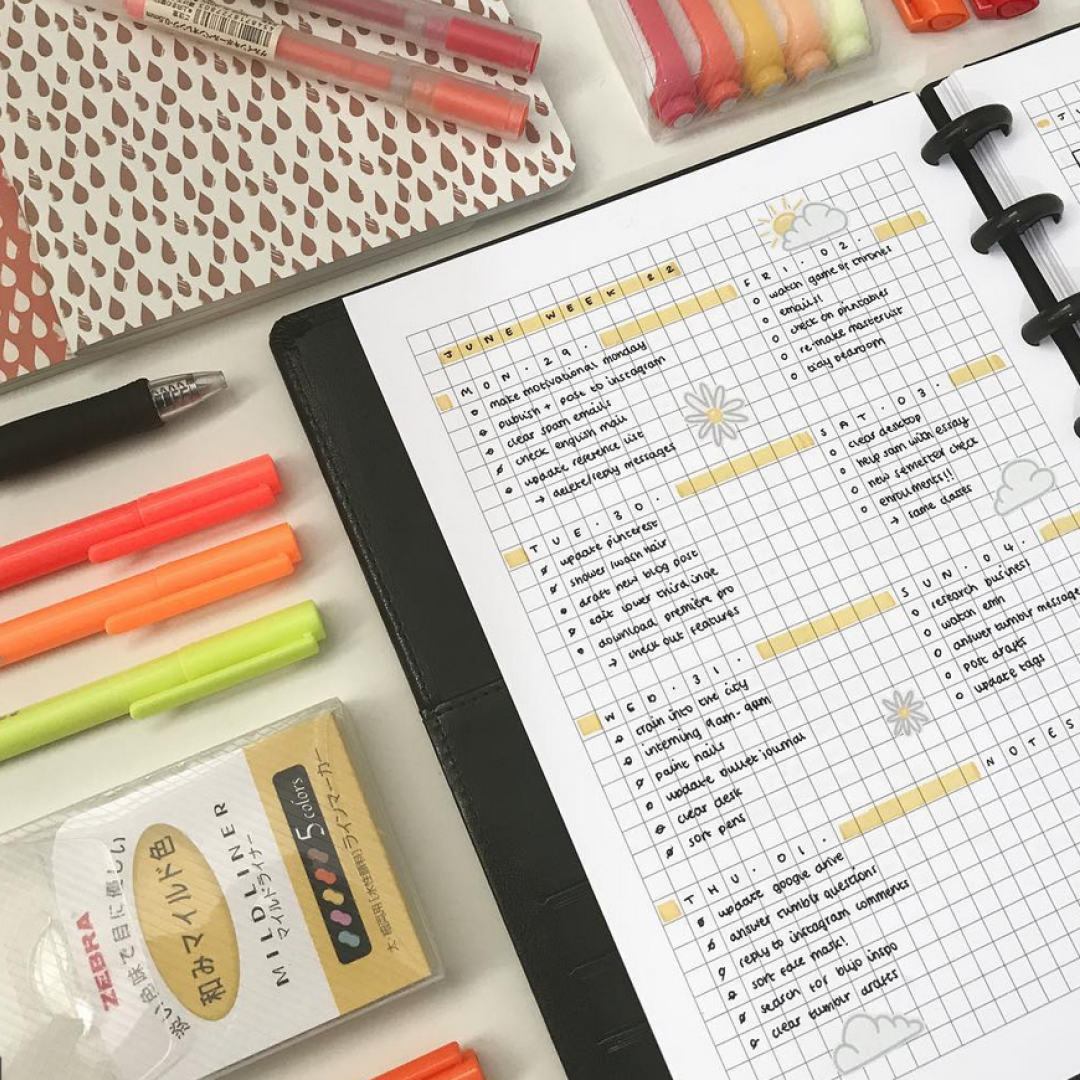 JUNE WEEK 22
MON.29.
make motivational monday
publish + post to instagram
clear spam emails
check english mail
update reference list
→ delete/reply messages
TUE.30.
update pinterest
shower/wash hair
draft new blog post
edit lower third inae
download premiere pro
→ check out features
WED.31.
train into the city
interning 9am-4pm
paint nails
update bullet journal
clear desk
sort pens
THU.01.
update google drive
answer tumblr questions
reply to instagram comments
sort face mask!
search for bujo inspo
clear tumblr drafts
FRI.02.
watch game of thrones
emails!
check on printables
re-make masterlist
tidy bedroom
SAT.03.
clear desktop
help sam with essay
new semester check
enrolments!!
→ same classes
SUN.04.
research busines!
watch emh
answer tumblr message
post drafts
update tags
NOTES
ZEBRA
淡い色味で目に優しい
和みマイルド色
MILDLINER
マイルドライナー
5 colors
ラインマーカー